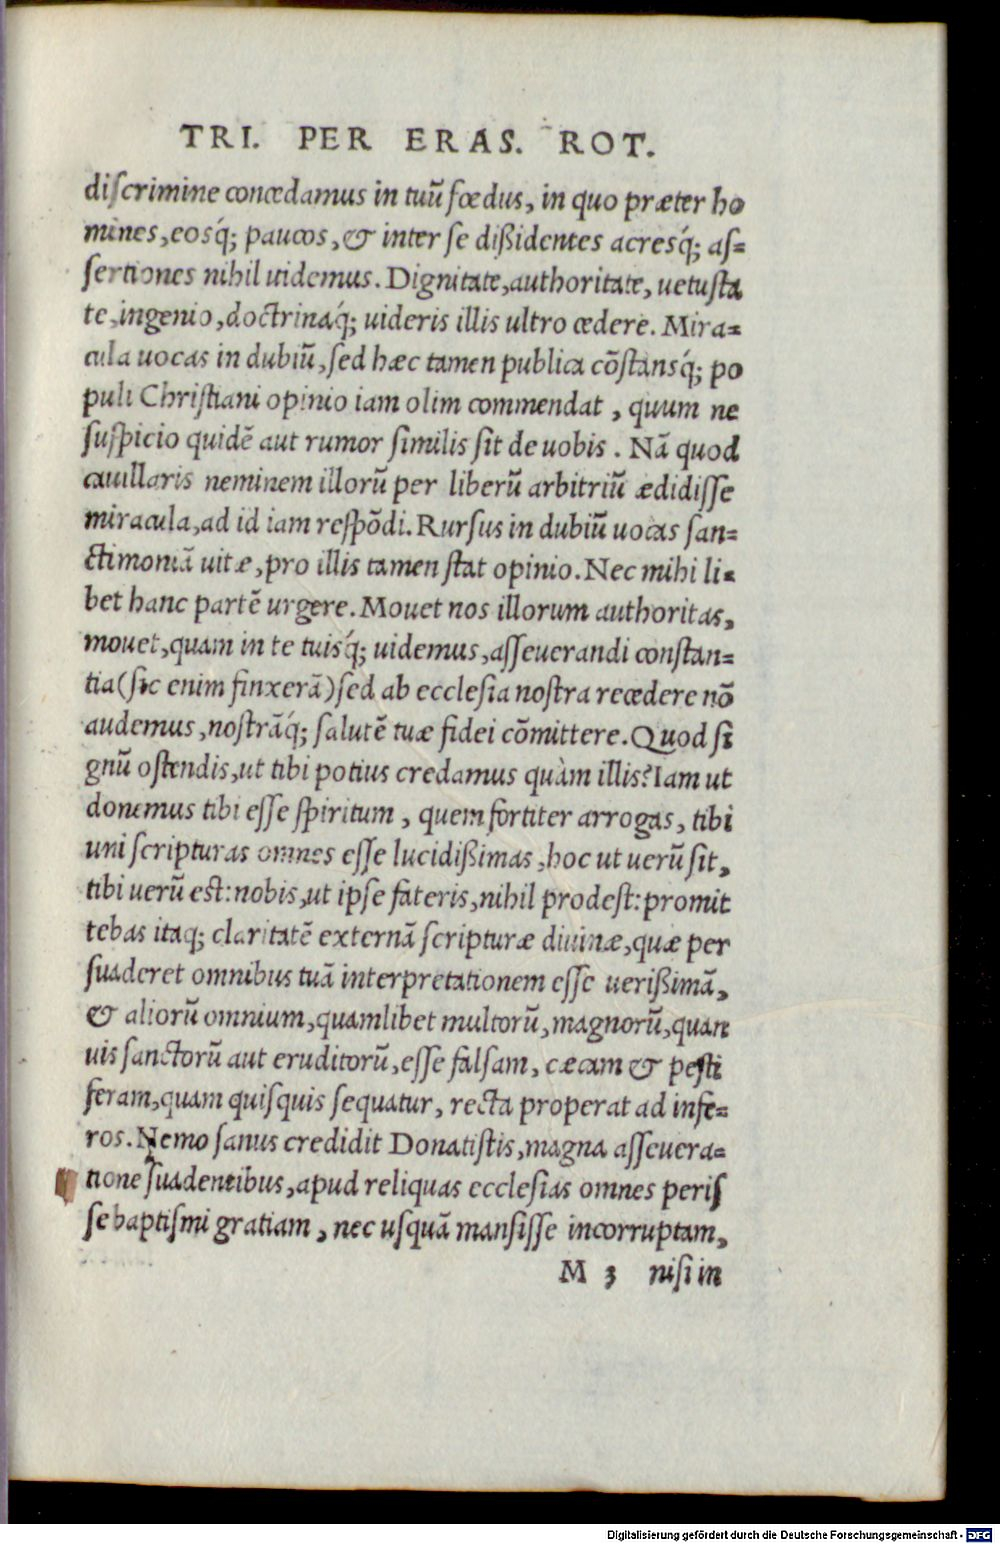 TRI. PER ERAS. ROT.
discrimine concedamus in tuū fœdus, in quo præter ho
mines, eosq́; paucos, & inter se dißidentes acresq́; as=
sertiones nihil uidemus. Dignitate, authoritate, uetusta
te, ingenio, doctrinaq́; uideris illis ultro cedere. Mira=
cula uocas in dubiū, sed hæc tamen publica cōstansq́; po
puli Christiani opinio iam olim commendat, quum ne
suspicio quidē aut rumor similis sit de uobis. Nā quod
cauillaris neminem illorū per liberū arbitriū ædidisse
miracula, ad id iam respōdi. Rursus in dubiū uocas san=
ctimoniā uitæ, pro illis tamen stat opinio. Nec mihi li=
bet hanc partē urgere. Mouet nos illorum authoritas,
mouet, quam in te tuisq́; uidemus, asseuerandi constan=
tia (sic enim finxerā) sed ab ecclesia nostra recedere nō
audemus, nostrāq́; salutē tuæ fidei cōmittere. Quod si
gnū ostendis, ut tibi potius credamus quàm illis? Iam ut
donemus tibi esse spiritum, quem fortiter arrogas, tibi
uni scripturas omnes esse lucidißimas, hoc ut uerū sit,
tibi uerū est: nobis, ut ipse fateris, nihil prodest: promit
tebas itaq; claritatē externā scripturæ diuinæ, quæ per
suaderet omnibus tuā interpretationem esse uerißimā,
& aliorū omnium, quamlibet multorū, magnorū, quan
uis sanctorū aut eruditorū, esse falsam, cæcam & pesti
feram, quam quisquis sequatur, recta properat ad infe=
ros. Nemo sanus credidit Donatistis, magna asseuera=
tione suadentibus, apud reliquas ecclesias omnes peris
se baptismi gratiam, nec usquā mansisse incorruptam,
M 3 nisi in
Digitalisierung gefördert durch die Deutsche Forschungsgemeinschaft - DFG